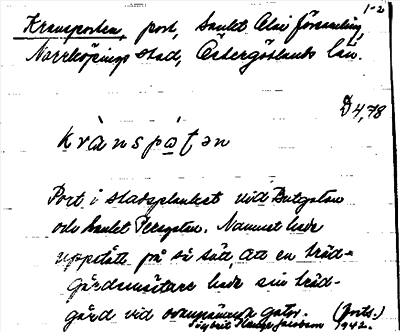 1-2
Kransporten, port, Sankt Olai församling,
Norrköpings stad, Östergötlands län.
D 4,78
kvànspo̱ʈən
Port i stadsplanket vid Butgatan
och Sankt Persgatan. Namnet lär
uppstått på så sätt, att en träd-
gårdsmästare hade sin träd-
gård vid ovannämnda gator. (forts.)
Ingbrit Jacobsson 1942.